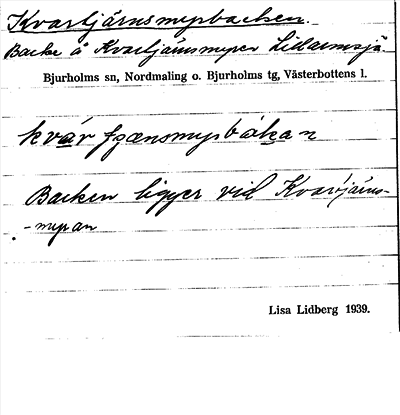 Kvartjärnsmyrbacken.
Backe å Kvartjärnsmyren Lillarmsjö
Bjurholms sn, Nordmaling o. Bjurholms tg, Västerbottens l.
Backen ligger vid Kvartjärns-
-myran
Lisa Lidberg 1939.